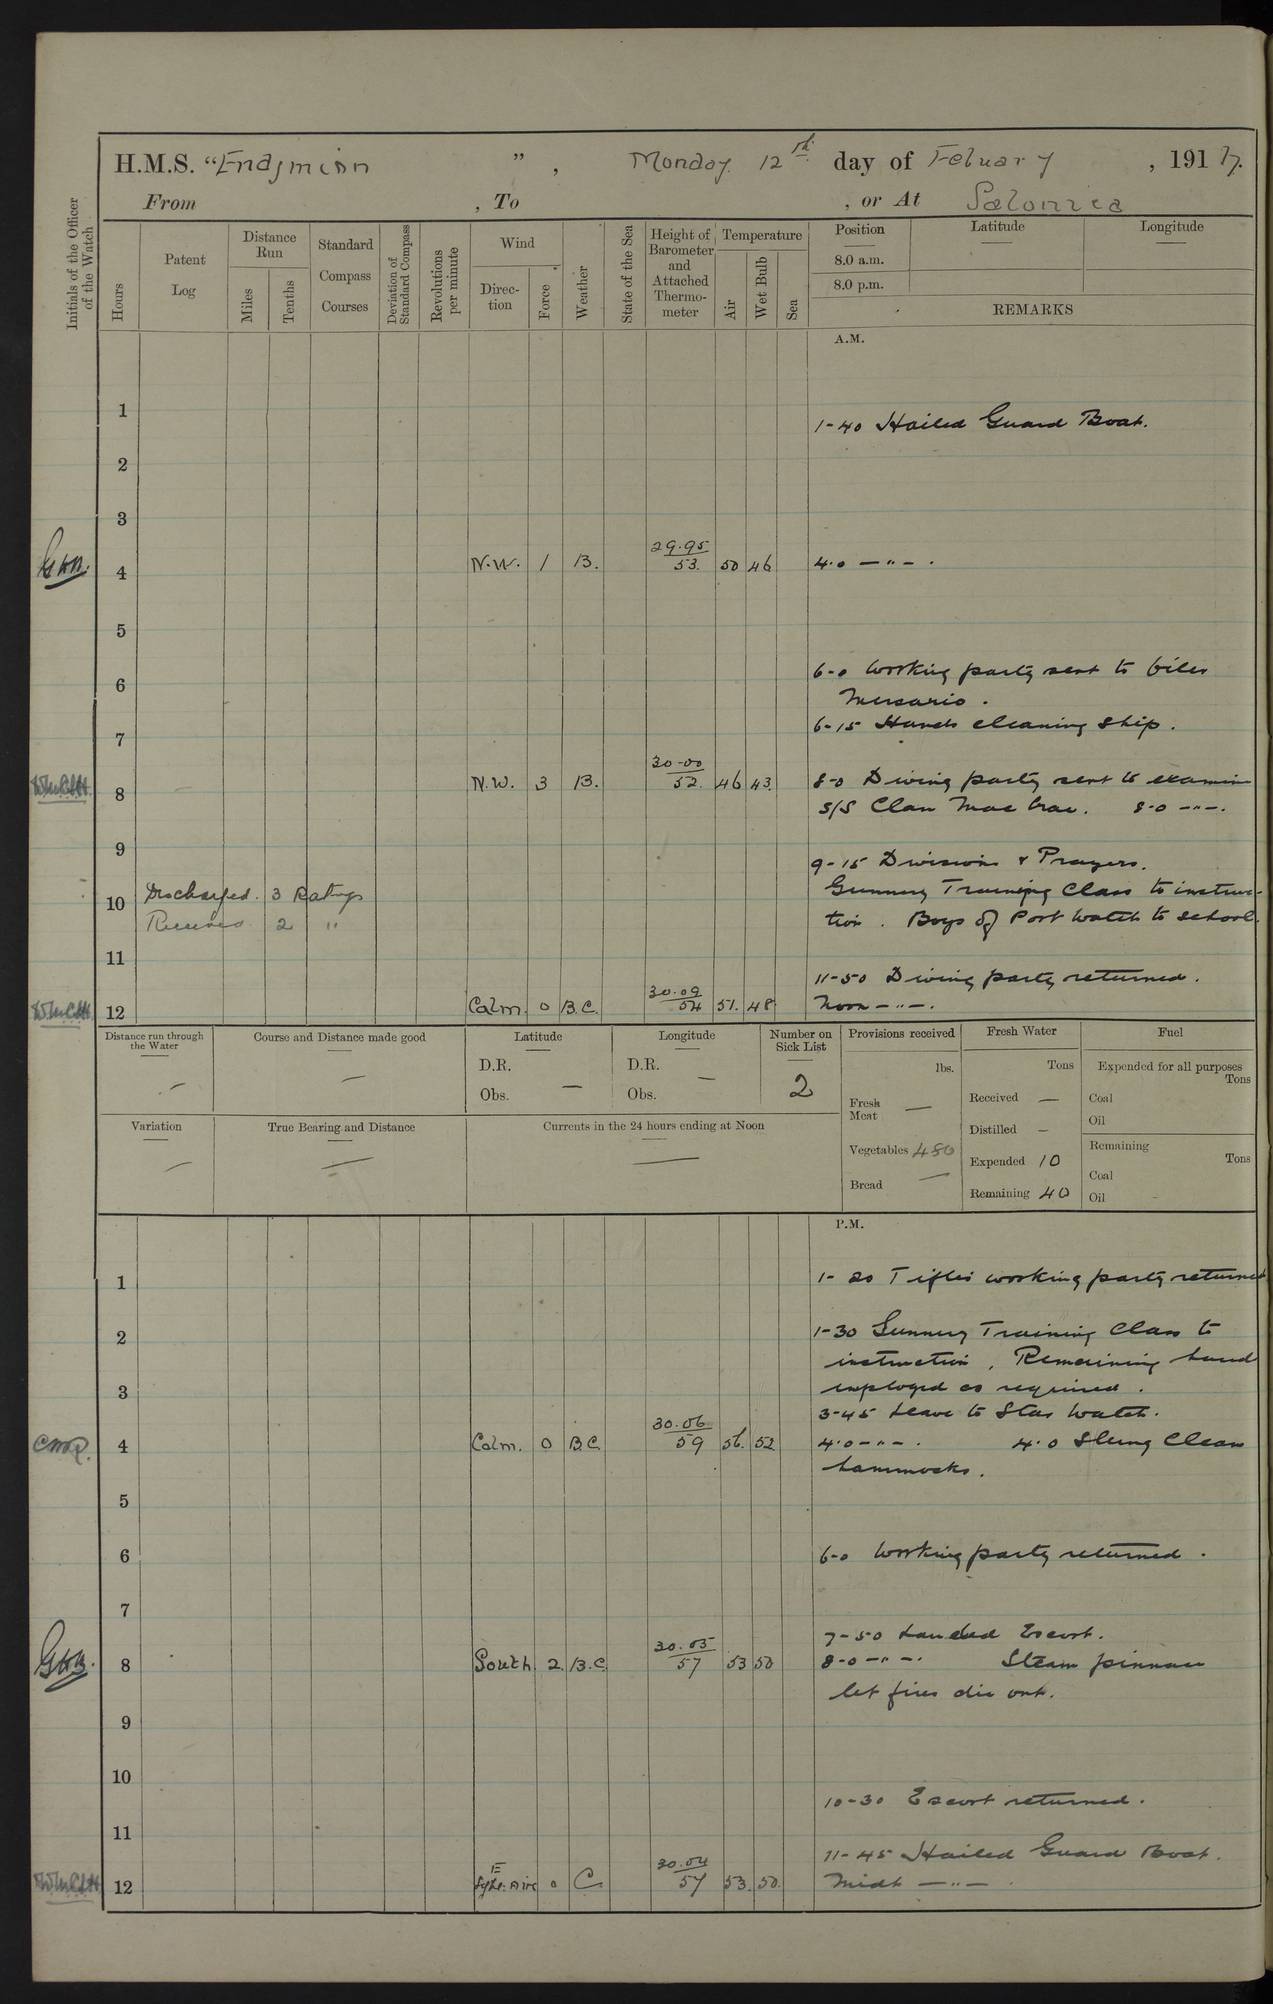 H.M.S. “Endymion ”, Monday 12th day of Febuary , 1917.
From , To , or At Salonica
Initials of the Officer of the Watch
Hours
Patent Log
Distance Run
Miles
Tenths
Standard Compass Courses
Deviation of Standard Compass
Revolutions per minute
Wind
Direction
Force
Weather
State of the Sea
Height of Barometer and Attached Thermometer
Temperature
Air
Wet Bulb
Sea
Position
Latitude
Longitude
8.0 a.m.
8.0 p.m.
REMARKS
A.M.
1
1-40 Hailed Guard Boat.
2
3
4 N.W. 1 B. 29.95 53. 50 46 4.0 — " — .
5
6-0 Working party sent to
6
7
6-15 Hands cleaning ship.
8 N.W. 3 B. 30.00 52. 46 43. 8-0 Diving party sent to examine
S/S Clan Mac Crae. 8-0 — " —.
9
9-15 Divisions & Prayers.
10 Discharged. 3 Ratings Gunnery Training Class to instruc-
Received 2 " tion. Boys of Port Watch to School.
11
11-50 Diving party returned.
12 Calm. 0 B.C. 30.09 54 51. 48 Noon — " —.
Distance run through the Water
Course and Distance made good
Latitude
D.R.
Obs. —
Longitude
D.R.
Obs. —
Number on Sick List
2
Provisions received
lbs.
Fresh Meat —
Vegetables 480
Bread —
Fresh Water
Tons
Received —
Distilled —
Expended 10
Remaining 40
Fuel
Expended for all purposes
Tons
Coal
Oil
Remaining
Tons
Coal
Oil
Variation
True Bearing and Distance
Currents in the 24 hours ending at Noon
P.M.
1 1-20 Tiflis working party returned
2 1-30 Gunnery Training Class to
instruction. Remaining hands
3 employed as required.
3-45 Leave to Star Watch.
4 Calm. 0 B.C. 30.06 59 56. 52 4.0 — " — . 4.0 Slung Clean
hammocks.
5
6 6-0 Working party returned.
7
7-50 Landed Escort.
8 South 2 B.C. 30.05 57 53 50 8-0 — " — . Steam pinnace
let fires die out.
9
10
10-30 Escort returned.
11
11-45 Hailed Guard Boat.
12 E Lght. Airs 0 C 30.04 57 53. 50. Midt — " — .